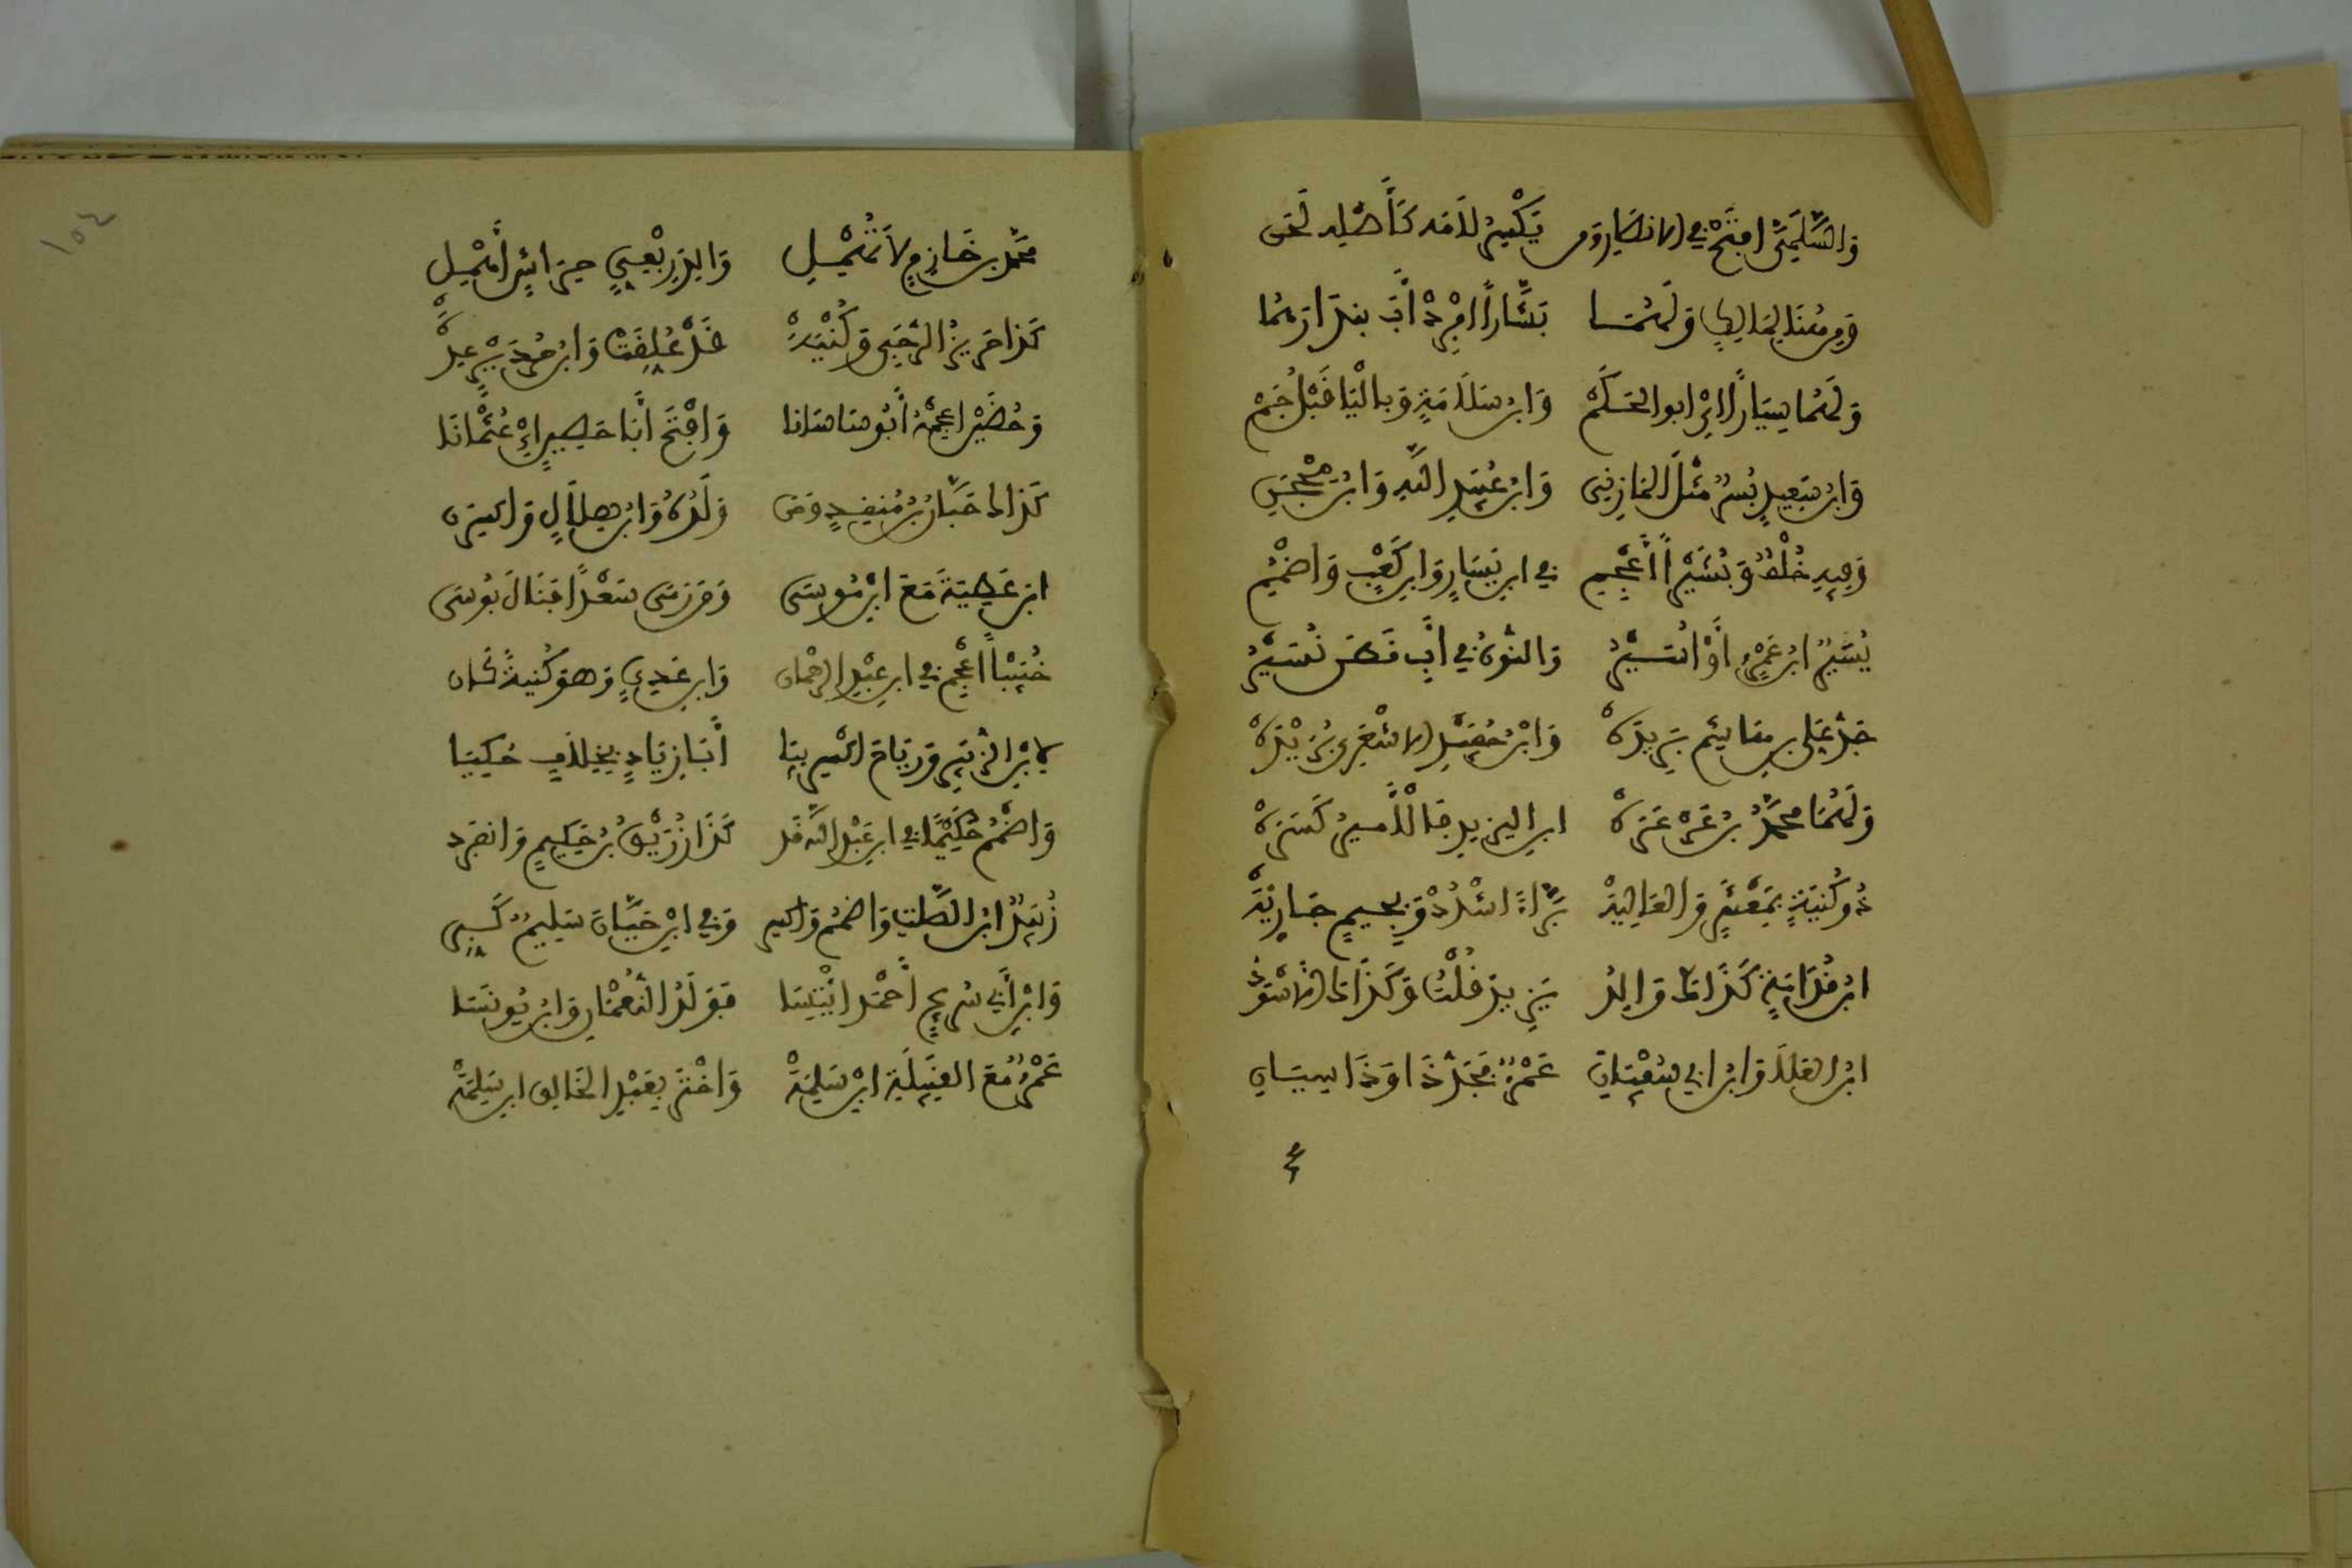 والسلمي افتح في الانصار ومن يكسر لامه كأصله لحن
ومن هنا لمالك ولهما بشارا افرد أب بندارهما
ولهما سيارا اي ابو الحكم وابن سلامة وباليا قبل جم
وابن سعيد بسر مثل المازني وابن عبيد الله وابن محجن
وفيه خلف وبشيرا أعجم في ابن يسار وابن كعب واضمم
يسير ابن عمرو أو أسير والنون في أب قطن نسير
جد علي بن هاشم بريد وابن حفيد الاشعري بريد
ولهما محمد بن عرعره ابن البرند فالأمير كسره
ذو كنية بمعشر والعاليه براء اشدد وبجيم جاريه
ابن قدامة كذاك والد يزيد قلت وكذاك الاسود
ابن العلا وابن ابي سفيان عمرو فجد ذا وذا سيان
محمد بن خازم لا تهمل والد ربعي حراش أهمل
كذا حريز الرحبي وكنيه قد علقت وابن حدير عده
وحضين اعجمه أبو ساسانا وافتح أبا حصين اي عثمانا
كذاك حبان بن منقذ ومن ولده وابن هلال واكسرن
ابن عطية مع ابن موسى ومن رمى سعدا فنال بوسى
خبيبا اعجم في ابن عبد الرحمان وابن عدي وهو كنية كان
لابن الزبير ورياح اكسر بيا أبا زياد بخلاف حكيا
واضمم حكيما في ابن عبد الله قد كذا رزيق بن حكيم وانفرد
زييد ابن الصلت واضمم واكسر وفي ابن حيان سليم كبر
وابن أبي سريج أحمد ائتسا بولد النعمان وابن يونسا
عمرو مع القبيلة ابن سلمه واختر بعبد الخالق ابن سلمه